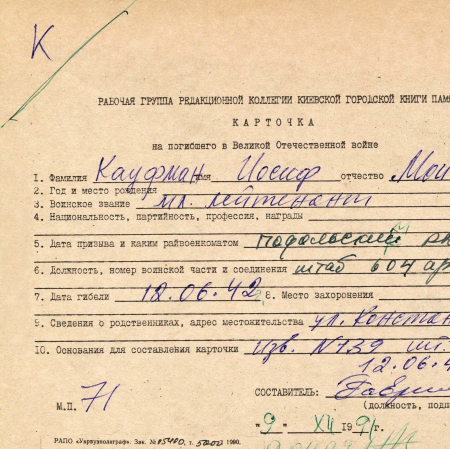 К
РАБОЧАЯ ГРУППА РЕДАКЦИОННОЙ КОЛЛЕГИИ КИЕВСКОЙ ГОРОДСКОЙ КНИГИ ПАМ
КАРТОЧКА
на погибшего в Великой Отечественной войне
1. Фамилия Кауфман имя Иосиф отчество Мои
2. Год и место рождения
3. Воинское звание мл. лейтенант
4. Национальность, партийность, профессия, награды
5. Дата призыва и каким райвоенкоматом Подольский рв
6. Должность, номер воинской части и соединения штаб 604 ар
7. Дата гибели 12.06.42 8. Место захоронения
9. Сведения о родственниках, адрес местожительства ул. Констан
10. Основания для составления карточки изв. N 739 шт.
12.06.4
СОСТАВИТЕЛЬ: Гаври
(должность, подп
М.П. 71
"9" XII 1991г.
РАПО «Укрвузполиграф». Зак. № 05400, т. 50000 1990.